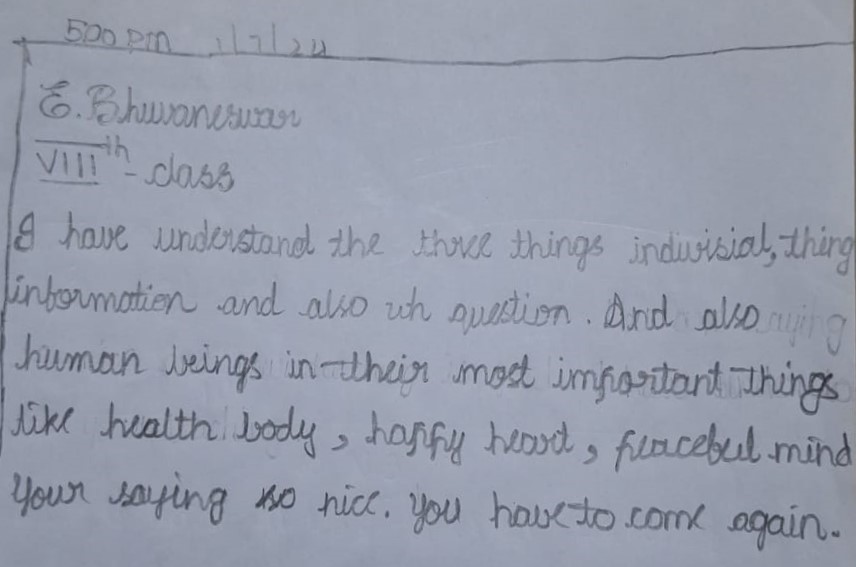 500 pm 1/7/24
E. Bhuvaneswar
VIIIth - class
I have understand the three things indivisial, thing
information and also wh question. And also
human beings in their most important things
like health body, happy heart, peacebul mind
Your saying so nice. you have to come again.